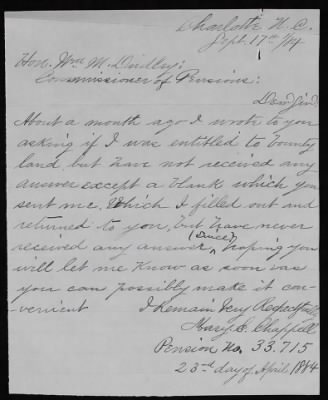 Charlotte N.C.
Sept. 17th /14
Hon. Wm M. Dudley:
Commissioner of Pensions:
Dear Sir:
About a month ago I wrote to you
asking if I was entitled to bounty
land but have not received any
answer except a blank which you
sent me. Which I filled out and
returned to you, but have never
received any answer (since), hoping you
will let me know as soon as
you can possibly make it con-
venient I Remain Very Respectfully,
Mary S. Chappell
Pension No. 33.715
23rd day of April 1884